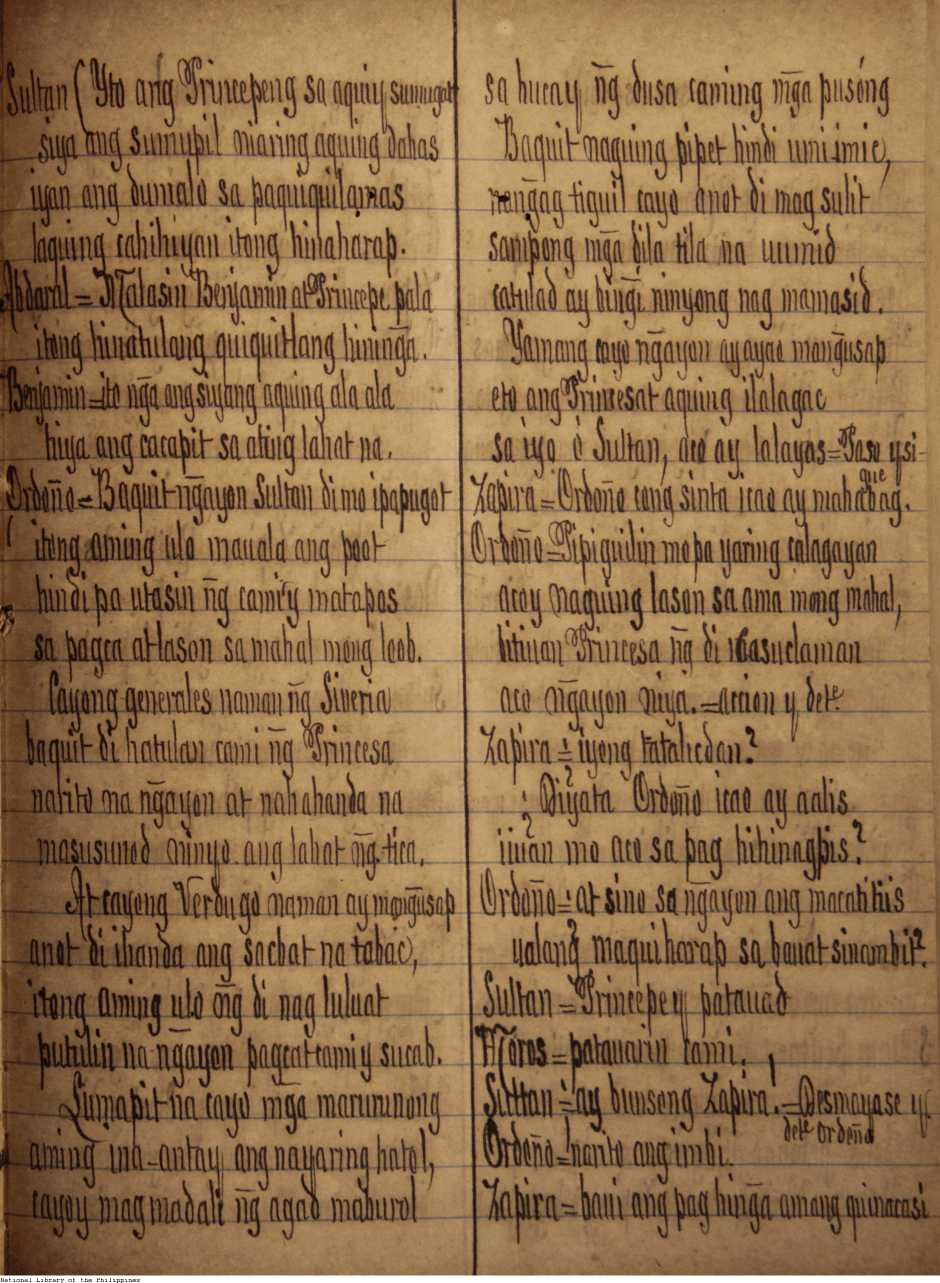 Sultan ( Yto ang Princepeng sa aquiy sumugat
siya ang sumupil niaring aquing dahas
iyan ang dumalo sa paquiquilamas
laquing cahihiyan itong hinaharap.
Abdaral = Malasin Benjamin at Princepe pala
itong hinatulang quiquitlang hininḡa.
Benjamin = ito nḡa ang siyang aquing ala ala
tiya ang cacapit sa ating lahat na.
Ordoño = Baquit nḡayon Sultan di mo ipapugot
( itong aming ulo mauala ang poot
hindi pa utasin nḡ cami'y matapos
sa pagca at lason sa mahal mong loob.
Cayong generales naman nḡ Siveria
baquit di hatulan cami nḡ Princesa
narito na nḡayon at nahahanda na
masusunod ninyo ang lahat nḡ tica.
At cayong Verdugo naman ay monḡusap
anot di ihanda ang sacbat na tabac,
itong aming ulo nḡ di nag luluat
putulin na nḡayon pagcat cami y sucab.
Lumapit na cayo mḡa marurunong
aming ina-antay ang nayaring hatol,
cayoy mag madali nḡ agad mahurol
sa hucay nḡ dusa caming mḡa pusong
Baquit naguing pipet hindi umiimic,
nanḡag tiguil cayo anot di mag sulit
sampong mḡa dila tila na uumid
catulad ay binḡi ninyong nag mamasid.
Yamang cayo nḡayon ay ayao monḡusap
eto ang Princesat aquing ilalagac
sa iyo ó Sultan, aco ay lalayas = Paso y si-
Zapira = Ordoño cong sinta icao ay mahabag. que
Ordoño = Pipiguilin mo pa yaring calagayan
acoy naguing lason sa ama mong mahal,
bitiuan Princesa nḡ di casuclaman
aco nḡayon niya. = accion y dete
Zapira = ¿iyong tatalicdan?
¿Diyata Ordoño icao ay aalis
iiuan mo aco sa pag hihinagpis?
Ordoño = at sino sa nḡayon ang macatitiis
ualang maquiharap sa bauat sinambit?
Sultan = Princepe y patauad
Moros = patauarin cami.
Sultan = ay bunsong Zapira. = Desmayase y
dete Ordoño
Ordoño = narito ang imbi.
Zapira = baui ang pag hinḡa amang quinacasi
National Library of the Philippines